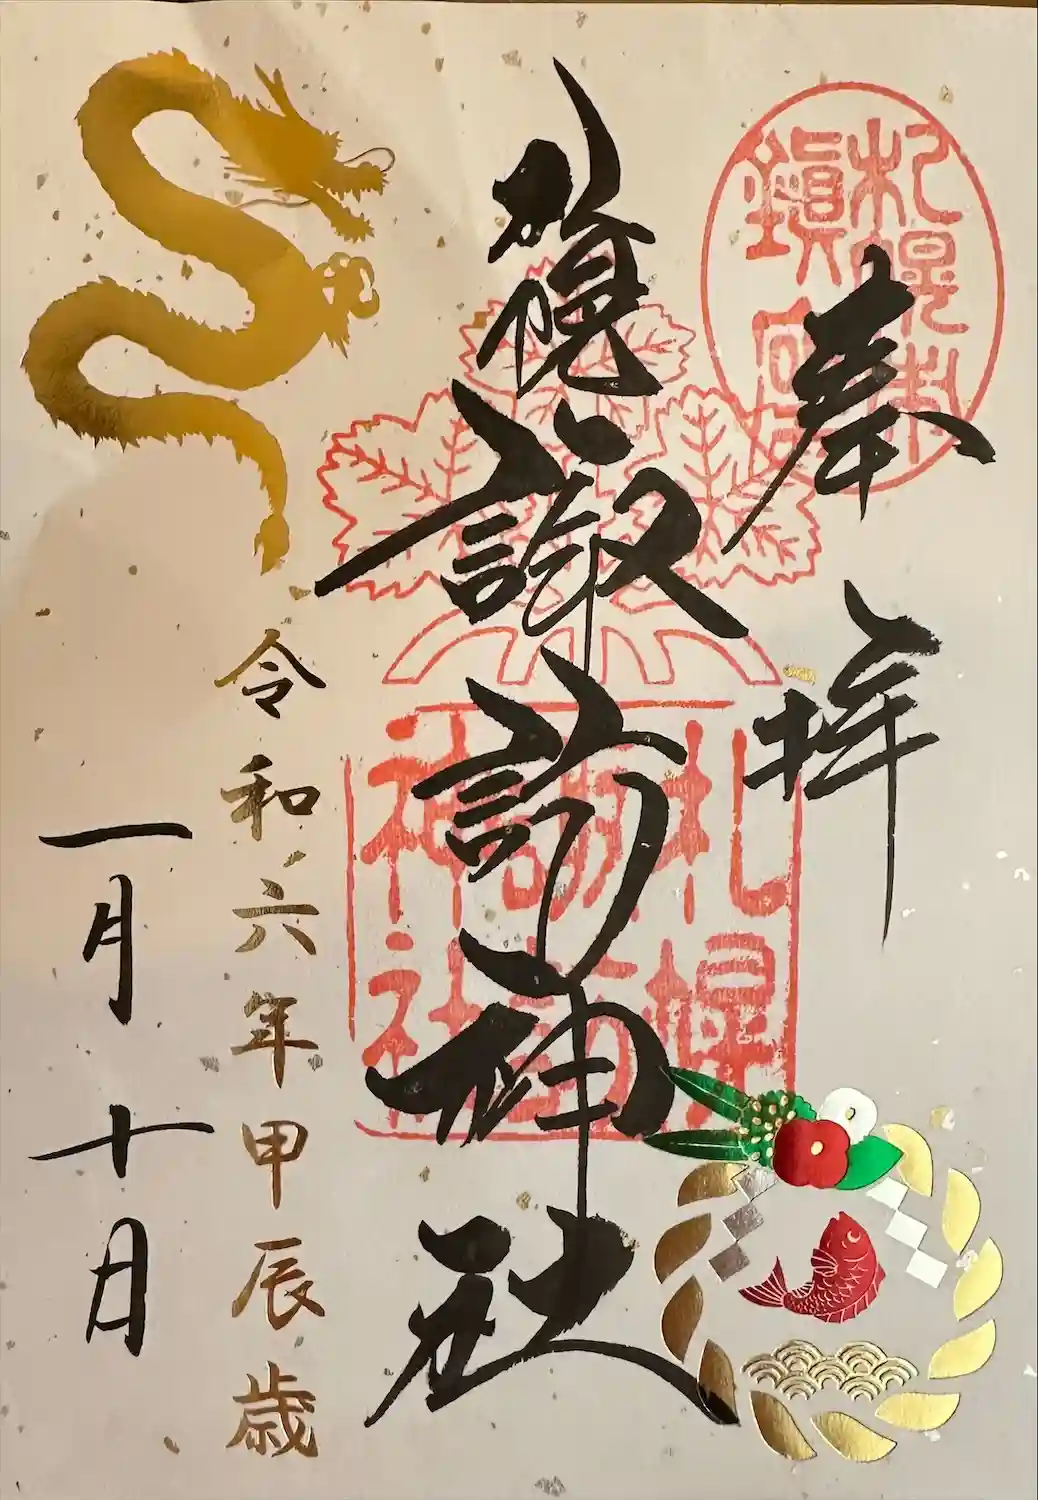 札幌村
鎮
奉拝
札幌諏訪神社
札幌
諏訪
神社
令和六年甲辰歳
一月十日